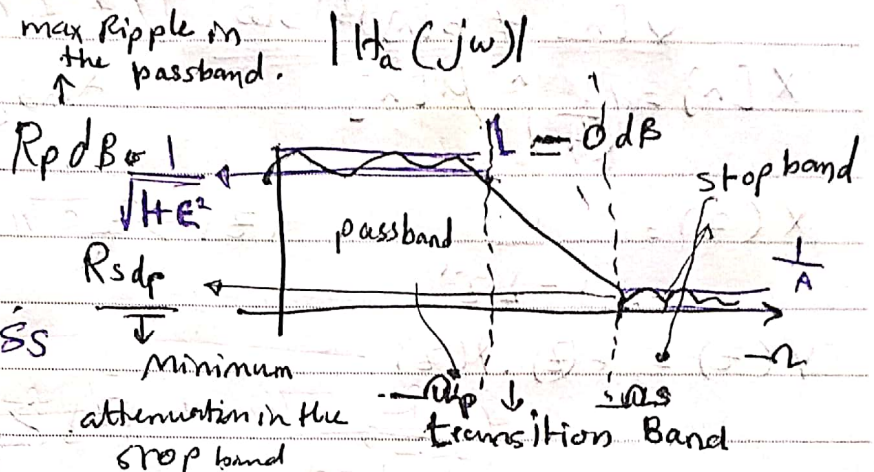 max Ripple in
the passband.
|Ha(jω)|
Rp dB or 1
√1+ε²
1 = 0 dB
stop band
passband
1
A
Rs dβ
δs
Minimum
attenuation in the
stop band
Ωp
Ωs
Ω
transition Band